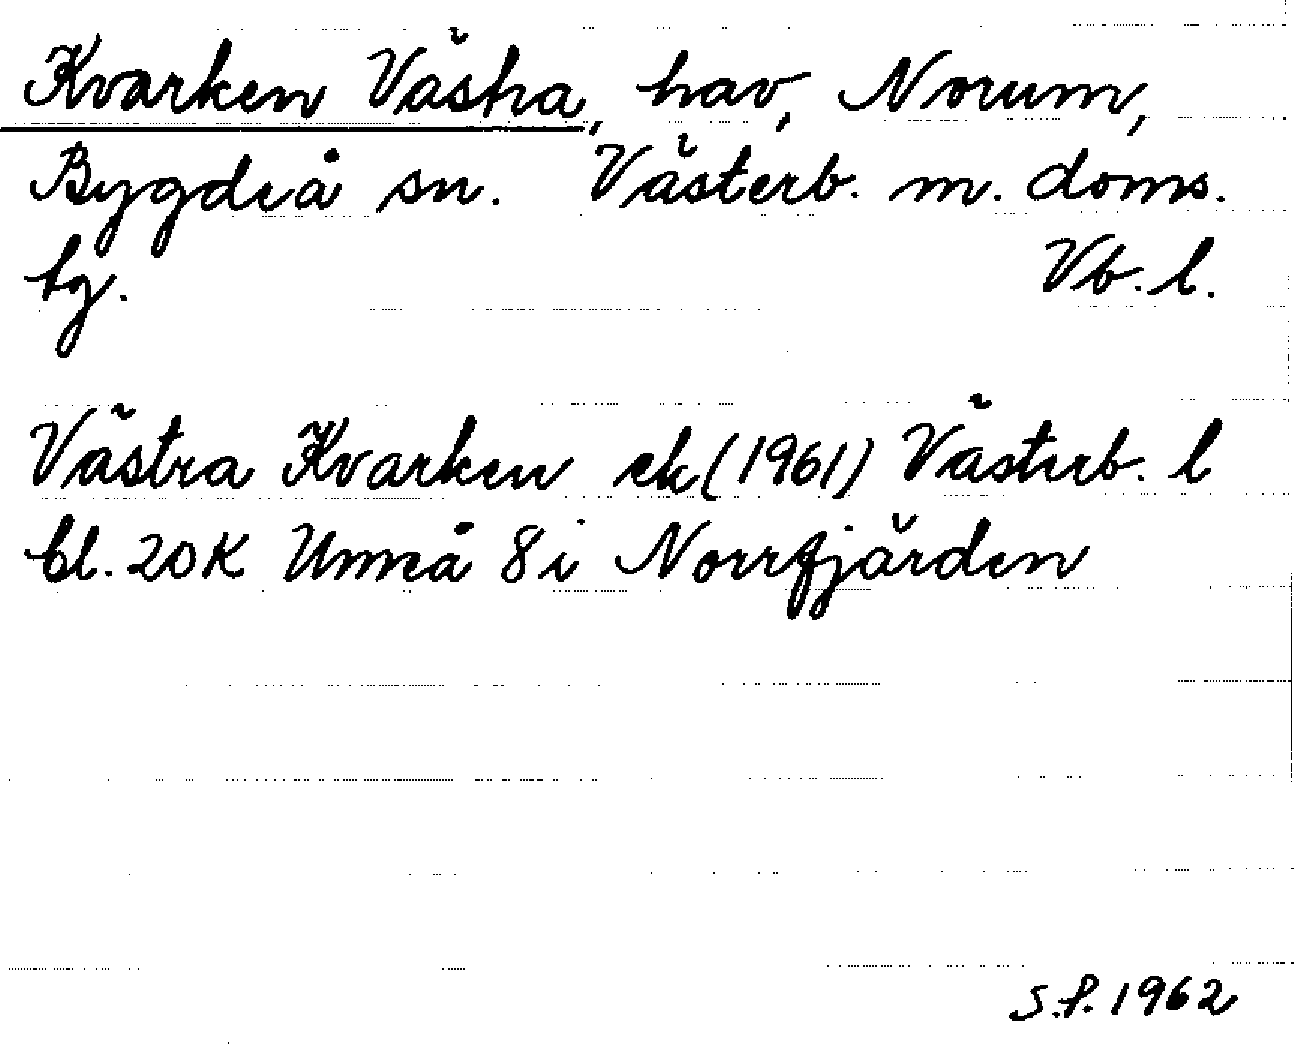 Kvarken Västra, hav, Norum,
Bygdeå sn. Västerb. m. doms.
tg. Vb. l.
Västra Kvarken ek (1961) Västerb. l
bl. 20K Umeå 8i Norrfjärden
S.P. 1962